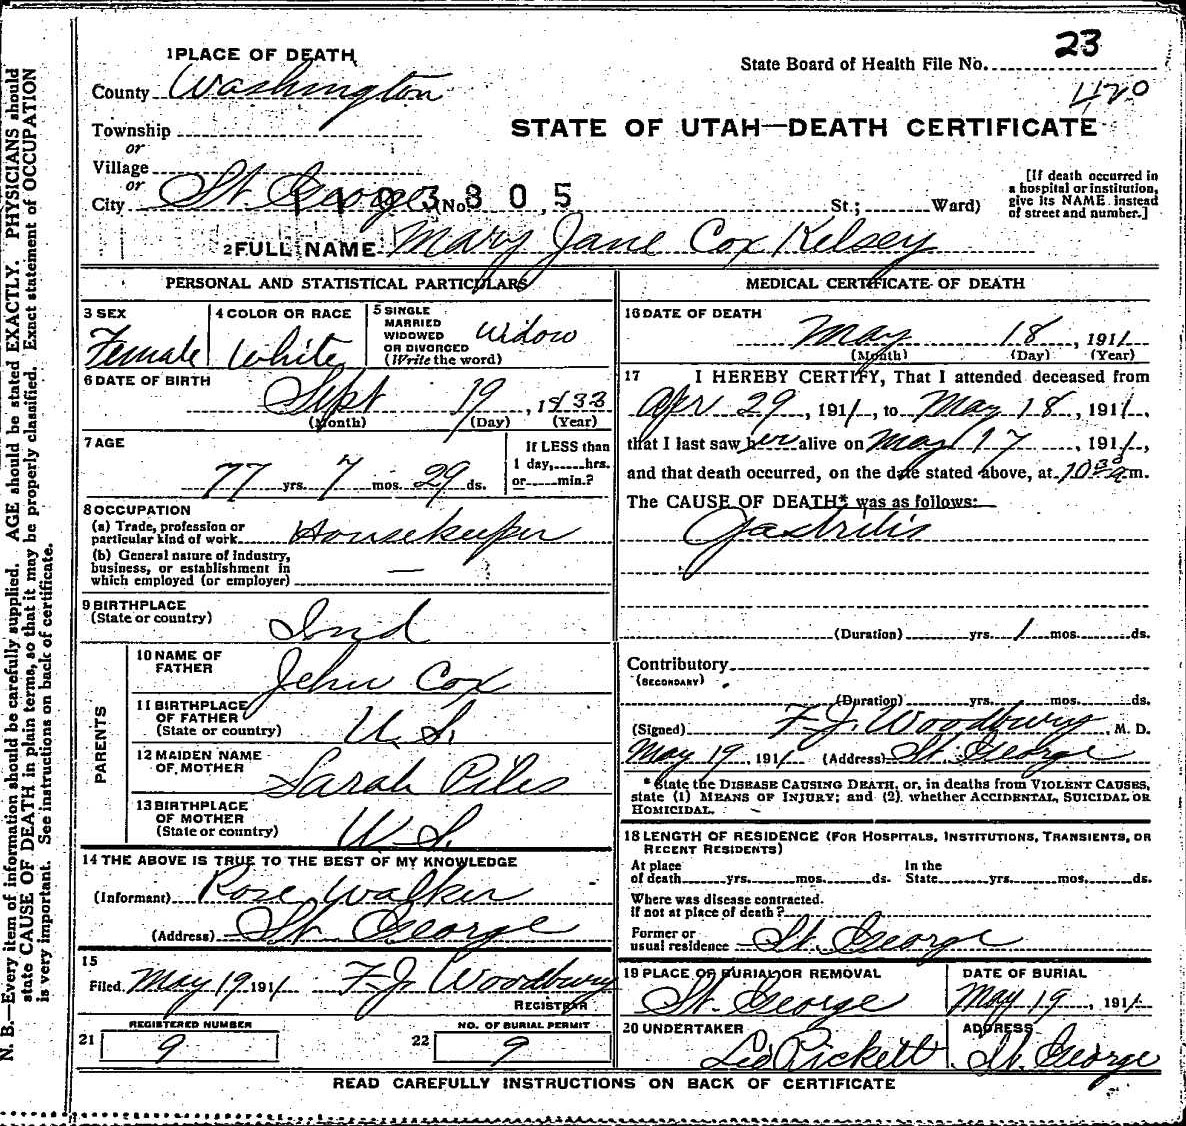 23
1 PLACE OF DEATH
State Board of Health File No.
420
County Washington
STATE OF UTAH—DEATH CERTIFICATE
Township
or
Village
or
City St. George (No. St.; Ward)
1103805
[If death occurred in
a hospital or institution,
give its NAME instead
of street and number.]
2 FULL NAME Mary Jane Cox Kelsey
PERSONAL AND STATISTICAL PARTICULARS
3 SEX
Female
4 COLOR OR RACE
White
5 SINGLE
MARRIED
WIDOWED
OR DIVORCED
(Write the word)
Widow
6 DATE OF BIRTH
Sept 19, 1833
(Month) (Day) (Year)
7 AGE
77 yrs. 7 mos. 29 ds.
If LESS than
1 day, hrs.
or min.?
8 OCCUPATION
(a) Trade, profession or
particular kind of work Housekeeper
(b) General nature of industry,
business, or establishment in
which employed (or employer) —
9 BIRTHPLACE
(State or country) Ind
PARENTS
10 NAME OF
FATHER Jehu Cox
11 BIRTHPLACE
OF FATHER
(State or country) U. S.
12 MAIDEN NAME
OF MOTHER Sarah Piles
13 BIRTHPLACE
OF MOTHER
(State or country) U. S.
14 THE ABOVE IS TRUE TO THE BEST OF MY KNOWLEDGE
(Informant) Rose Walker
(Address) St. George
15
Filed May 19 1911 F. J. Woodbury
REGISTRAR
REGISTERED NUMBER
21 9
NO. OF BURIAL PERMIT
22 9
MEDICAL CERTIFICATE OF DEATH
16 DATE OF DEATH
May 18, 1911
(Month) (Day) (Year)
17 I HEREBY CERTIFY, That I attended deceased from
Apr 29, 1911, to May 18, 1911,
that I last saw her alive on May 17, 1911,
and that death occurred, on the date stated above, at 10 30 a m.
The CAUSE OF DEATH* was as follows:
Gastritis
(Duration) yrs. 1 mos. ds.
Contributory
(SECONDARY)
(Duration) yrs. mos. ds.
(Signed) F. J. Woodbury, M. D.
May 19, 1911 (Address) St. George
* State the DISEASE CAUSING DEATH, or, in deaths from VIOLENT CAUSES,
state (1) MEANS OF INJURY; and (2) whether ACCIDENTAL, SUICIDAL OR
HOMICIDAL.
18 LENGTH OF RESIDENCE (FOR HOSPITALS, INSTITUTIONS, TRANSIENTS, OR
RECENT RESIDENTS)
At place
of death yrs. mos. ds.
In the
State yrs. mos. ds.
Where was disease contracted.
if not at place of death?
Former or
usual residence St. George
19 PLACE OF BURIAL OR REMOVAL
St. George
DATE OF BURIAL
May 19, 1911
20 UNDERTAKER
Leo Pickett
ADDRESS
St. George
READ CAREFULLY INSTRUCTIONS ON BACK OF CERTIFICATE
N. B.—Every item of information should be carefully supplied. AGE should be stated EXACTLY. PHYSICIANS should
state CAUSE OF DEATH in plain terms, so that it may be properly classified. Exact statement of OCCUPATION
is very important. See instructions on back of certificate.